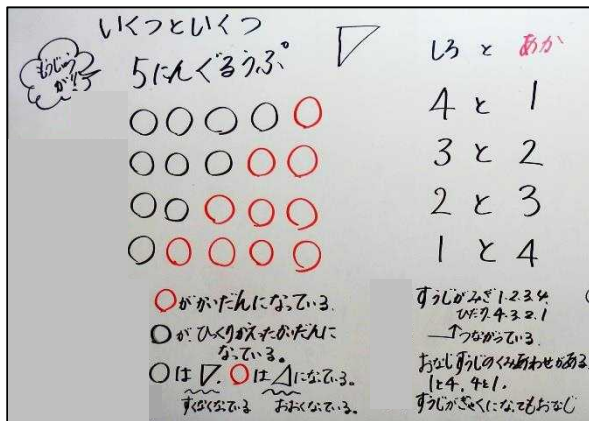 いくつといくつ
もうじゅうがり
5にんぐるうぷ
しろ と あか
4 と 1
3 と 2
2 と 3
1 と 4
○がかいだんになっている.
○が、ひくりがえったかいだんに
なっている。
○は▽. ○は△になっている。
すくなくなっている おおくなっている.
すうじがみぎ1.2.3.4.
ひだり.4.3.2.1
→つながっている.
おなじすうじのくみあわせがある.
1と4. 4と1.
すうじがぎゃくになってもおなじ